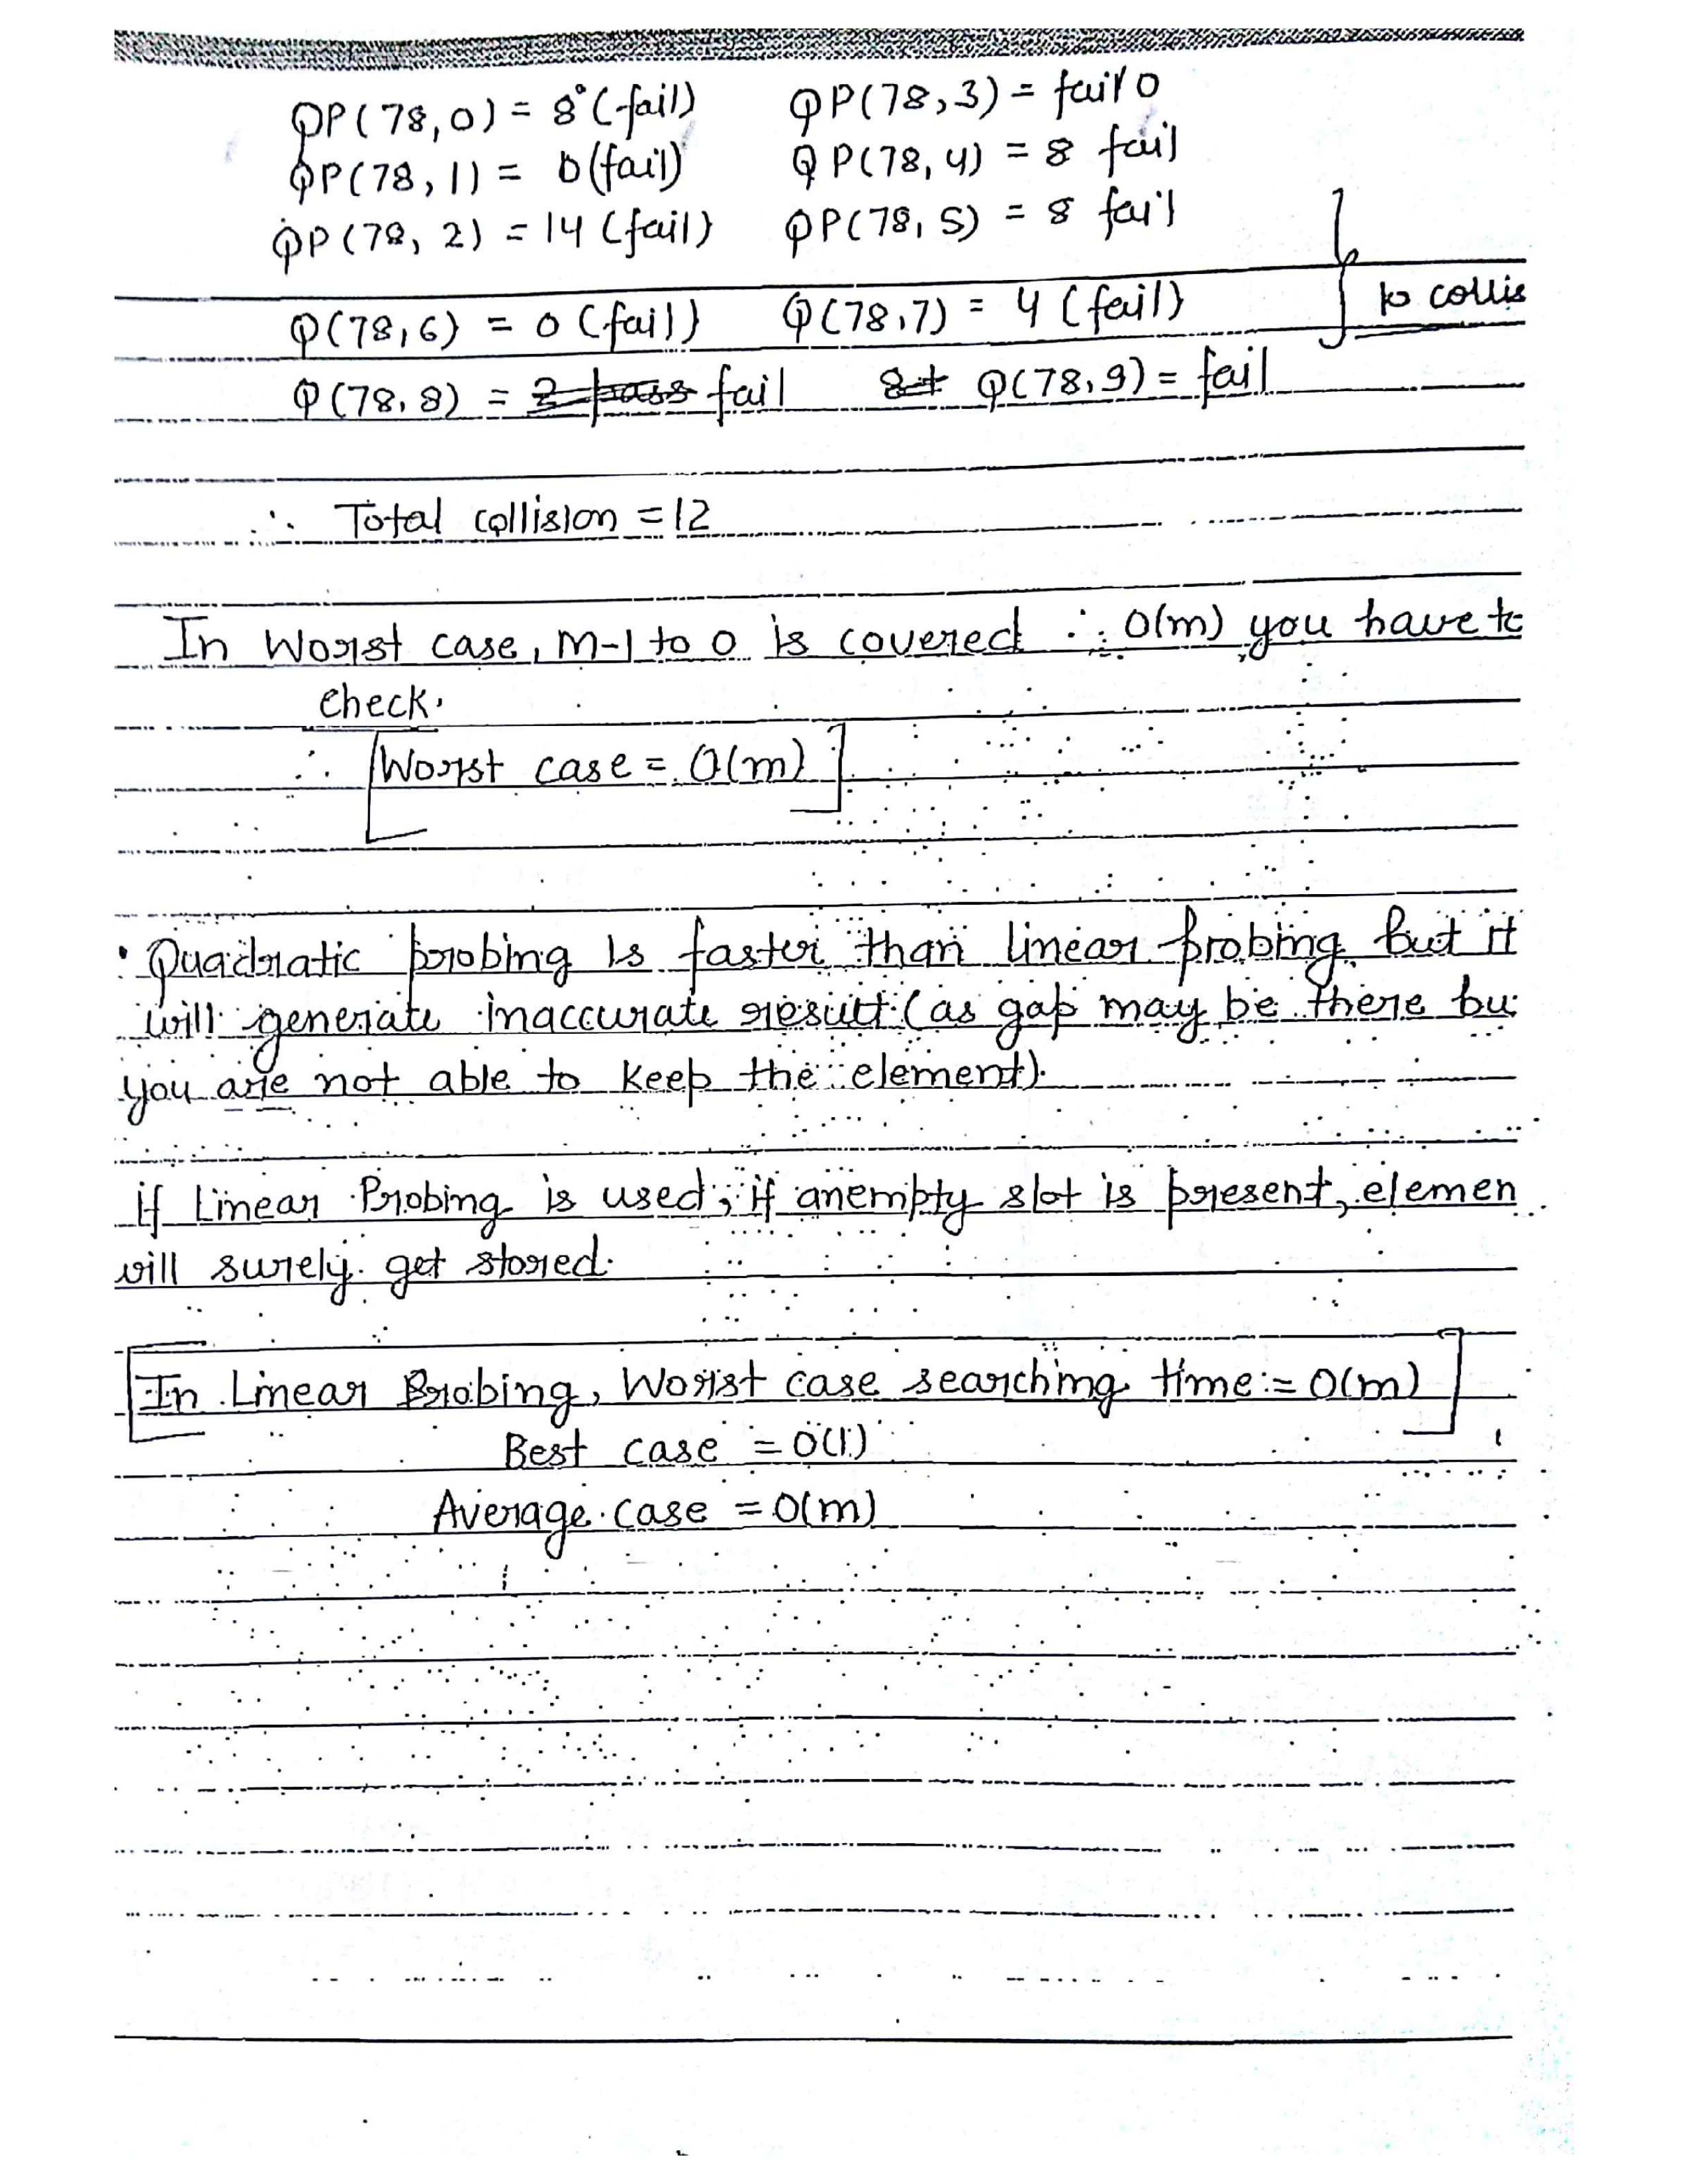 QP(78,0) = 8 (fail) QP(78,3) = fail 0
QP(78,1) = 0 (fail) QP(78,4) = 8 fail
QP(78,2) = 14 (fail) QP(78,5) = 8 fail
Q(78,6) = 0 (fail) Q(78,7) = 4 (fail) 10 collis
Q(78,8) = fail Q(78,9) = fail
∴ Total collision = 12
In Worst case, m-1 to 0 is covered ∴ O(m) you have to
check.
∴ Worst case = O(m)
• Quadratic probing is faster than linear probing but it
will generate inaccurate result (as gap may be there bu
you are not able to keep the element).
if Linear Probing is used, if an empty slot is present, elemen
will surely get stored.
In Linear Probing, Worst case searching time = O(m)
Best case = O(1)
Average case = O(m)